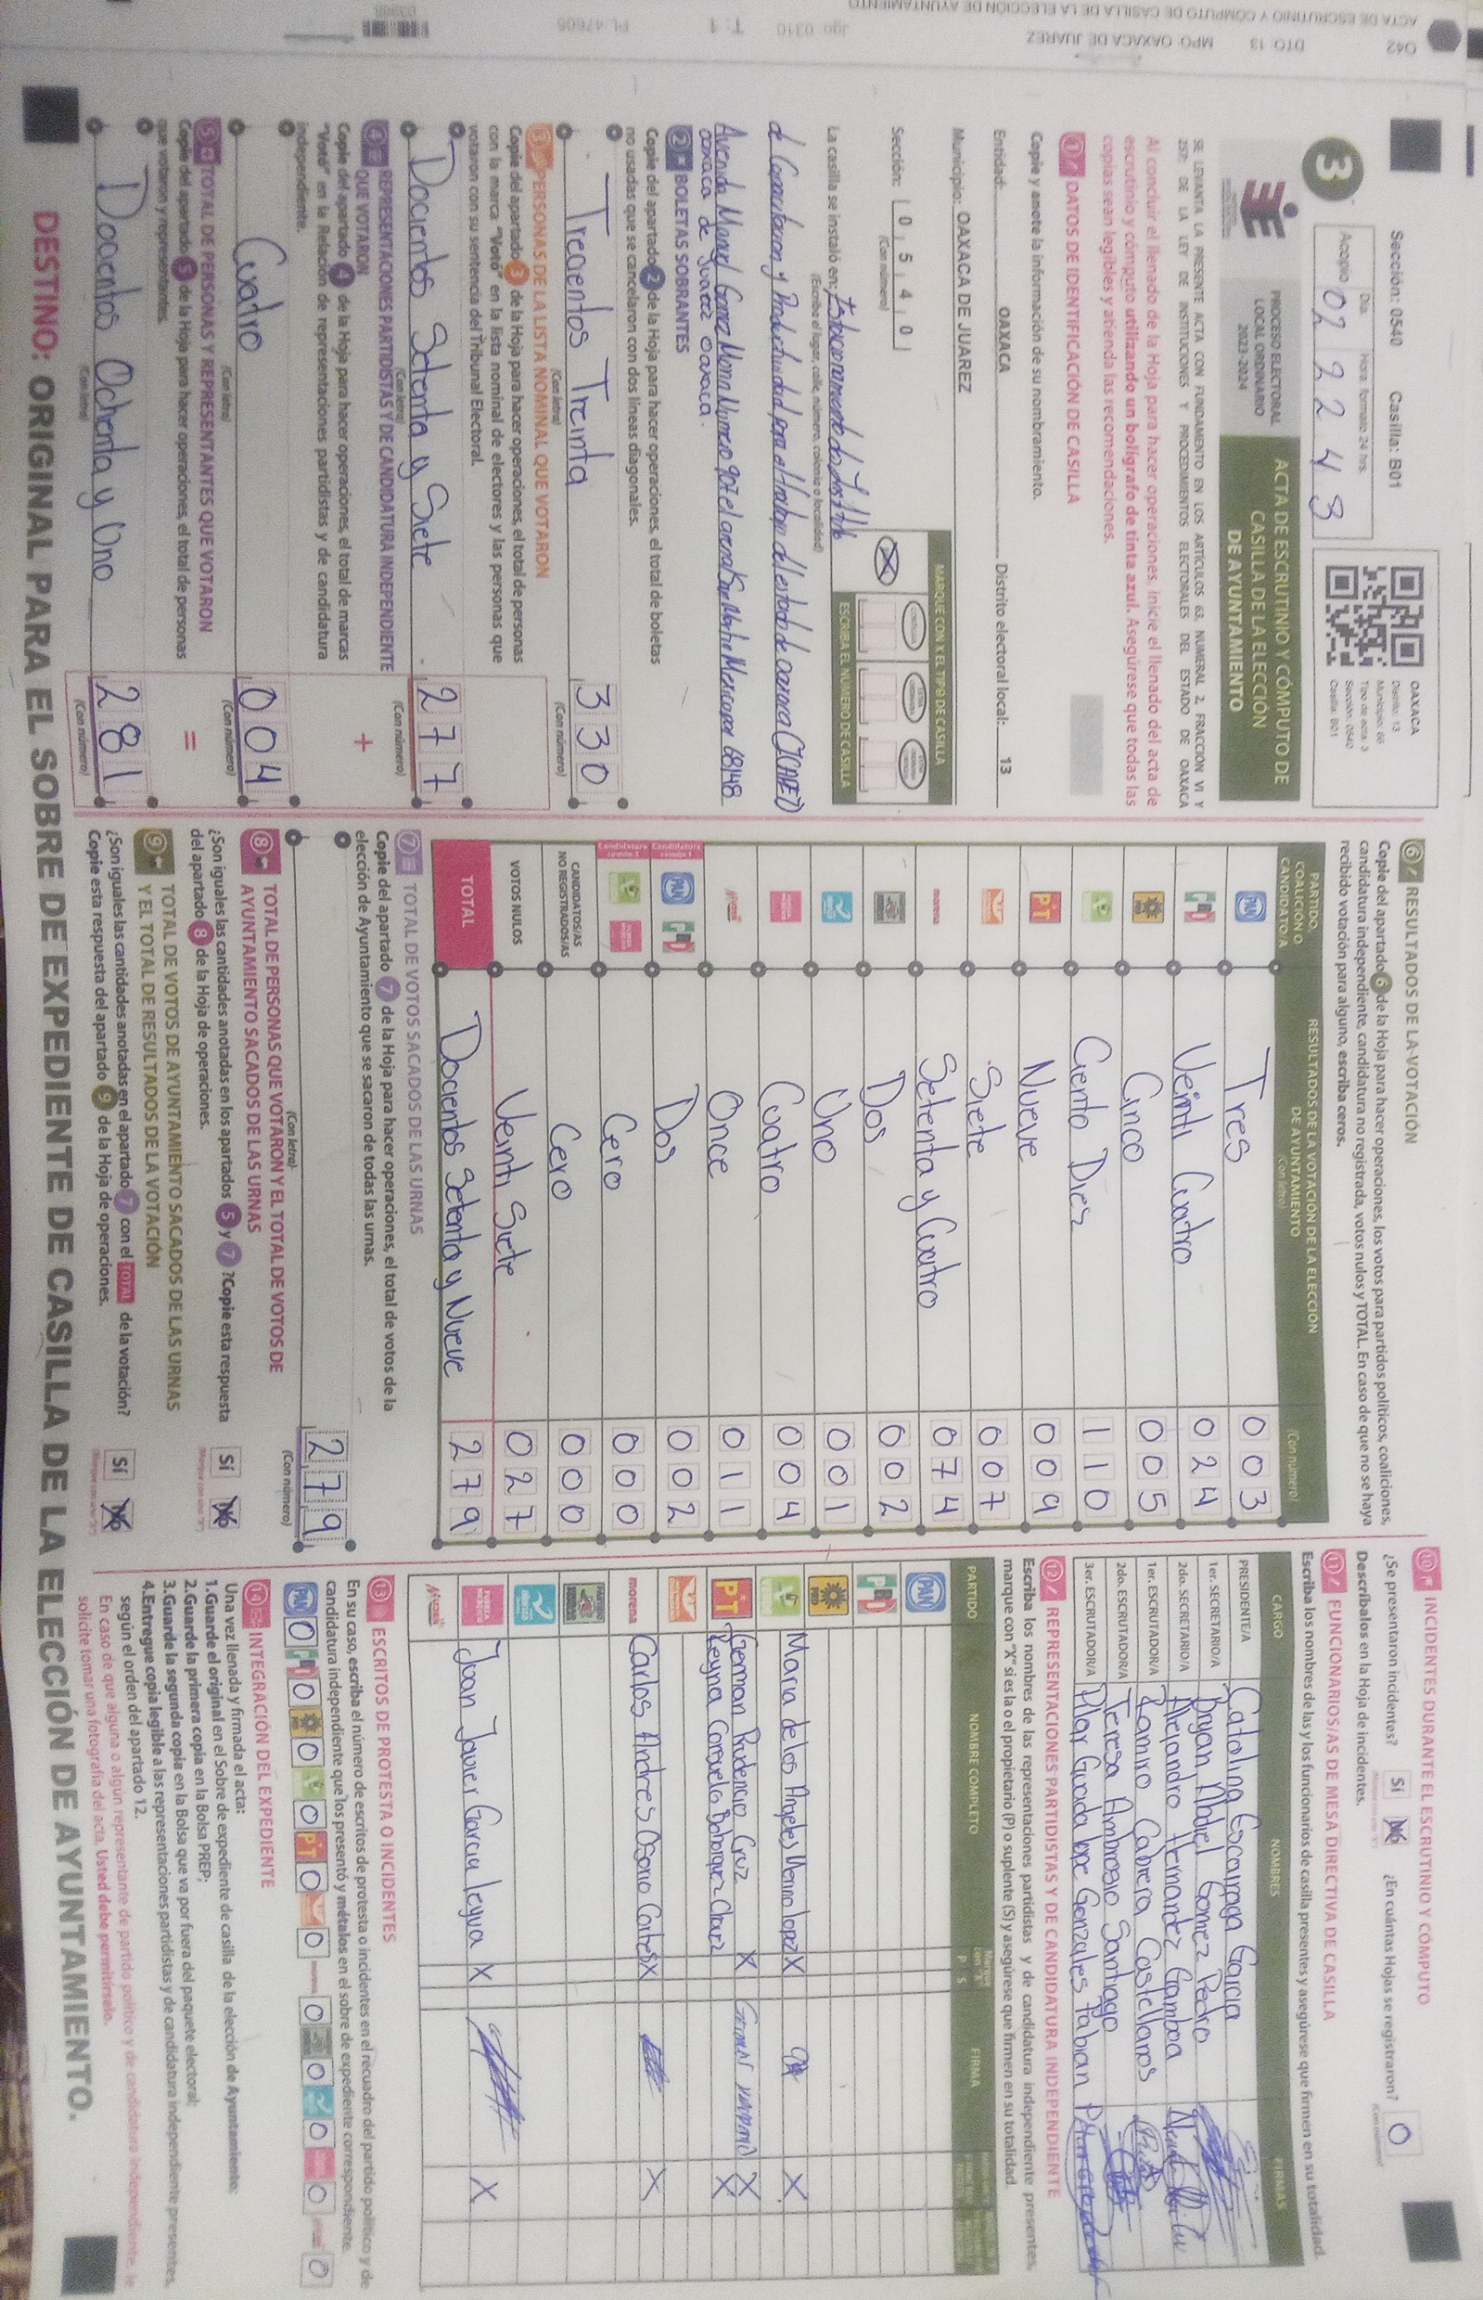 Sección: 0540 Casilla: B01
OAXACA
Distrito: 13
Municipio: 66
Tipo de acta: 3
Sección: 0540
Casilla: B01
3
Acopio
Día Hora: Formato 24 hrs.
02 22 43
PROCESO ELECTORAL
LOCAL ORDINARIO
2023-2024
ACTA DE ESCRUTINIO Y CÓMPUTO DE
CASILLA DE LA ELECCIÓN
DE AYUNTAMIENTO
SE LEVANTA LA PRESENTE ACTA CON FUNDAMENTO EN LOS ARTÍCULOS 63, NUMERAL 2, FRACCIÓN VI Y
257; DE LA LEY DE INSTITUCIONES Y PROCEDIMIENTOS ELECTORALES DEL ESTADO DE OAXACA
Al concluir el llenado de la Hoja para hacer operaciones, inicie el llenado del acta de
escrutinio y cómputo utilizando un bolígrafo de tinta azul. Asegúrese que todas las
copias sean legibles y atienda las recomendaciones.
1 DATOS DE IDENTIFICACIÓN DE CASILLA
Copie y anote la información de su nombramiento.
Entidad: OAXACA Distrito electoral local: 13
Municipio: OAXACA DE JUAREZ
Sección: 0 5 4 0
(Con número)
MARQUE CON X EL TIPO DE CASILLA
ESCRIBA EL NÚMERO DE CASILLA
La casilla se instaló en:
(Escriba el lugar, calle, número, colonia o localidad)
de Capacitacion y Productividad para el trabajo del estado de oaxaca (ICAPET)
Avenida Manuel Gomez Morin Numero 907 el arenal San Martin Mexicapan 68148
oaxaca de Juarez oaxaca.
2 BOLETAS SOBRANTES
Copie del apartado 2 de la Hoja para hacer operaciones, el total de boletas
no usadas que se cancelaron con dos líneas diagonales.
Trecientos Treinta 330
(Con letra) (Con número)
3 PERSONAS DE LA LISTA NOMINAL QUE VOTARON
Copie del apartado 3 de la Hoja para hacer operaciones, el total de personas
con la marca "Votó" en la lista nominal de electores y las personas que
votaron con su sentencia del Tribunal Electoral.
Docientos Setenta y Siete 277
(Con letra) (Con número)
4 REPRESENTACIONES PARTIDISTAS Y DE CANDIDATURA INDEPENDIENTE
QUE VOTARON +
Copie del apartado 4 de la Hoja para hacer operaciones, el total de marcas
"Votó" en la Relación de representaciones partidistas y de candidatura
independiente.
Cuatro 004
(Con letra) (Con número)
5 TOTAL DE PERSONAS Y REPRESENTANTES QUE VOTARON =
Copie del apartado 5 de la Hoja para hacer operaciones, el total de personas
que votaron y representantes.
Docientos Ochenta y Uno 281
(Con letra) (Con número)
6 RESULTADOS DE LA VOTACIÓN
Copie del apartado 6 de la Hoja para hacer operaciones, los votos para partidos políticos, coaliciones,
candidatura independiente, candidatura no registrada, votos nulos y TOTAL. En caso de que no se haya
recibido votación para alguno, escriba ceros.
PARTIDO, COALICIÓN O CANDIDATO/A
RESULTADOS DE LA VOTACIÓN DE LA ELECCIÓN DE AYUNTAMIENTO
(Con letra) (Con número)
PAN Tres 003
PRI Veinti Cuatro 024
PRD Cinco 005
Ciento Diez 110
PT Nueve 009
Siete 007
morena Setenta y Cuatro 074
Dos 002
Uno 001
Coatro 004
Once 011
PAN PRI Dos 002
Cero 000
CANDIDATOS/AS NO REGISTRADOS/AS Cero 000
VOTOS NULOS Veinti Siete 027
TOTAL Docientos Setenta y Nueve 279
7 TOTAL DE VOTOS SACADOS DE LAS URNAS
Copie del apartado 7 de la Hoja para hacer operaciones, el total de votos de la
elección de Ayuntamiento que se sacaron de todas las urnas.
279
(Con letra) (Con número)
8 TOTAL DE PERSONAS QUE VOTARON Y EL TOTAL DE VOTOS DE
AYUNTAMIENTO SACADOS DE LAS URNAS
¿Son iguales las cantidades anotadas en los apartados 5 y 7 ? Copie esta respuesta
del apartado 8 de la Hoja de operaciones.
Sí No
9 TOTAL DE VOTOS DE AYUNTAMIENTO SACADOS DE LAS URNAS
Y EL TOTAL DE RESULTADOS DE LA VOTACIÓN
¿Son iguales las cantidades anotadas en el apartado 7 con el TOTAL de la votación?
Copie esta respuesta del apartado 9 de la Hoja de operaciones.
Sí No
10 INCIDENTES DURANTE EL ESCRUTINIO Y CÓMPUTO
¿Se presentaron incidentes? Sí No ¿En cuántas Hojas se registraron? 0
Descríbalos en la Hoja de incidentes.
11 FUNCIONARIOS/AS DE MESA DIRECTIVA DE CASILLA
Escriba los nombres de las y los funcionarios de casilla presentes y asegúrese que firmen en su totalidad.
CARGO NOMBRES FIRMAS
PRESIDENTE/A Catalina Escarraga Garcia
1er. SECRETARIO/A Brayan Abdiel Gomez Pedro
2do. SECRETARIO/A Alejandro Hernandez Gamboa
1er. ESCRUTADOR/A Ramiro Cabrera Castellanos
2do. ESCRUTADOR/A Teresa Ambrosio Santiago
3er. ESCRUTADOR/A Pilar Guadalupe Gonzales Fabian
12 REPRESENTACIONES PARTIDISTAS Y DE CANDIDATURA INDEPENDIENTE
Escriba los nombres de las representaciones partidistas y de candidatura independiente presentes,
marque con "X" si es la o el propietario (P) o suplente (S) y asegúrese que firmen en su totalidad.
PARTIDO NOMBRE COMPLETO P S FIRMA
PAN
PRI
PRD
Maria de los Angeles Merino lopez X X
PT German Prudencio Cruz X X
Reyna Consuelo Bohorquez Chavez X
morena Carlos Andres Osorio Cortes X X
Joan Javier Garcia leyva X X
13 ESCRITOS DE PROTESTA O INCIDENTES
En su caso, escriba el número de escritos de protesta o incidentes en el recuadro del partido político y de
candidatura independiente que los presentó y métalos en el sobre de expediente correspondiente.
PAN 0 PRI 0 PRD 0 0 PT 0 0 0 0 0 0 0
14 INTEGRACIÓN DEL EXPEDIENTE
Una vez llenada y firmada el acta:
1.Guarde el original en el Sobre de expediente de casilla de la elección de Ayuntamiento;
2.Guarde la primera copia en la Bolsa PREP;
3.Guarde la segunda copia en la Bolsa que va por fuera del paquete electoral;
4.Entregue copia legible a las representaciones partidistas y de candidatura independiente presentes,
según el orden del apartado 12.
En caso de que alguna o algún representante de partido político y de candidatura independiente, le
solicite tomar una fotografía del acta, Usted debe permitírselo.
DESTINO: ORIGINAL PARA EL SOBRE DE EXPEDIENTE DE CASILLA DE LA ELECCIÓN DE AYUNTAMIENTO.
ACTA DE ESCRUTINIO Y COMPUTO DE CASILLA DE LA ELECCION DE AYUNTAMIENTO
042 DTO 13 MPO. OAXACA DE JUAREZ